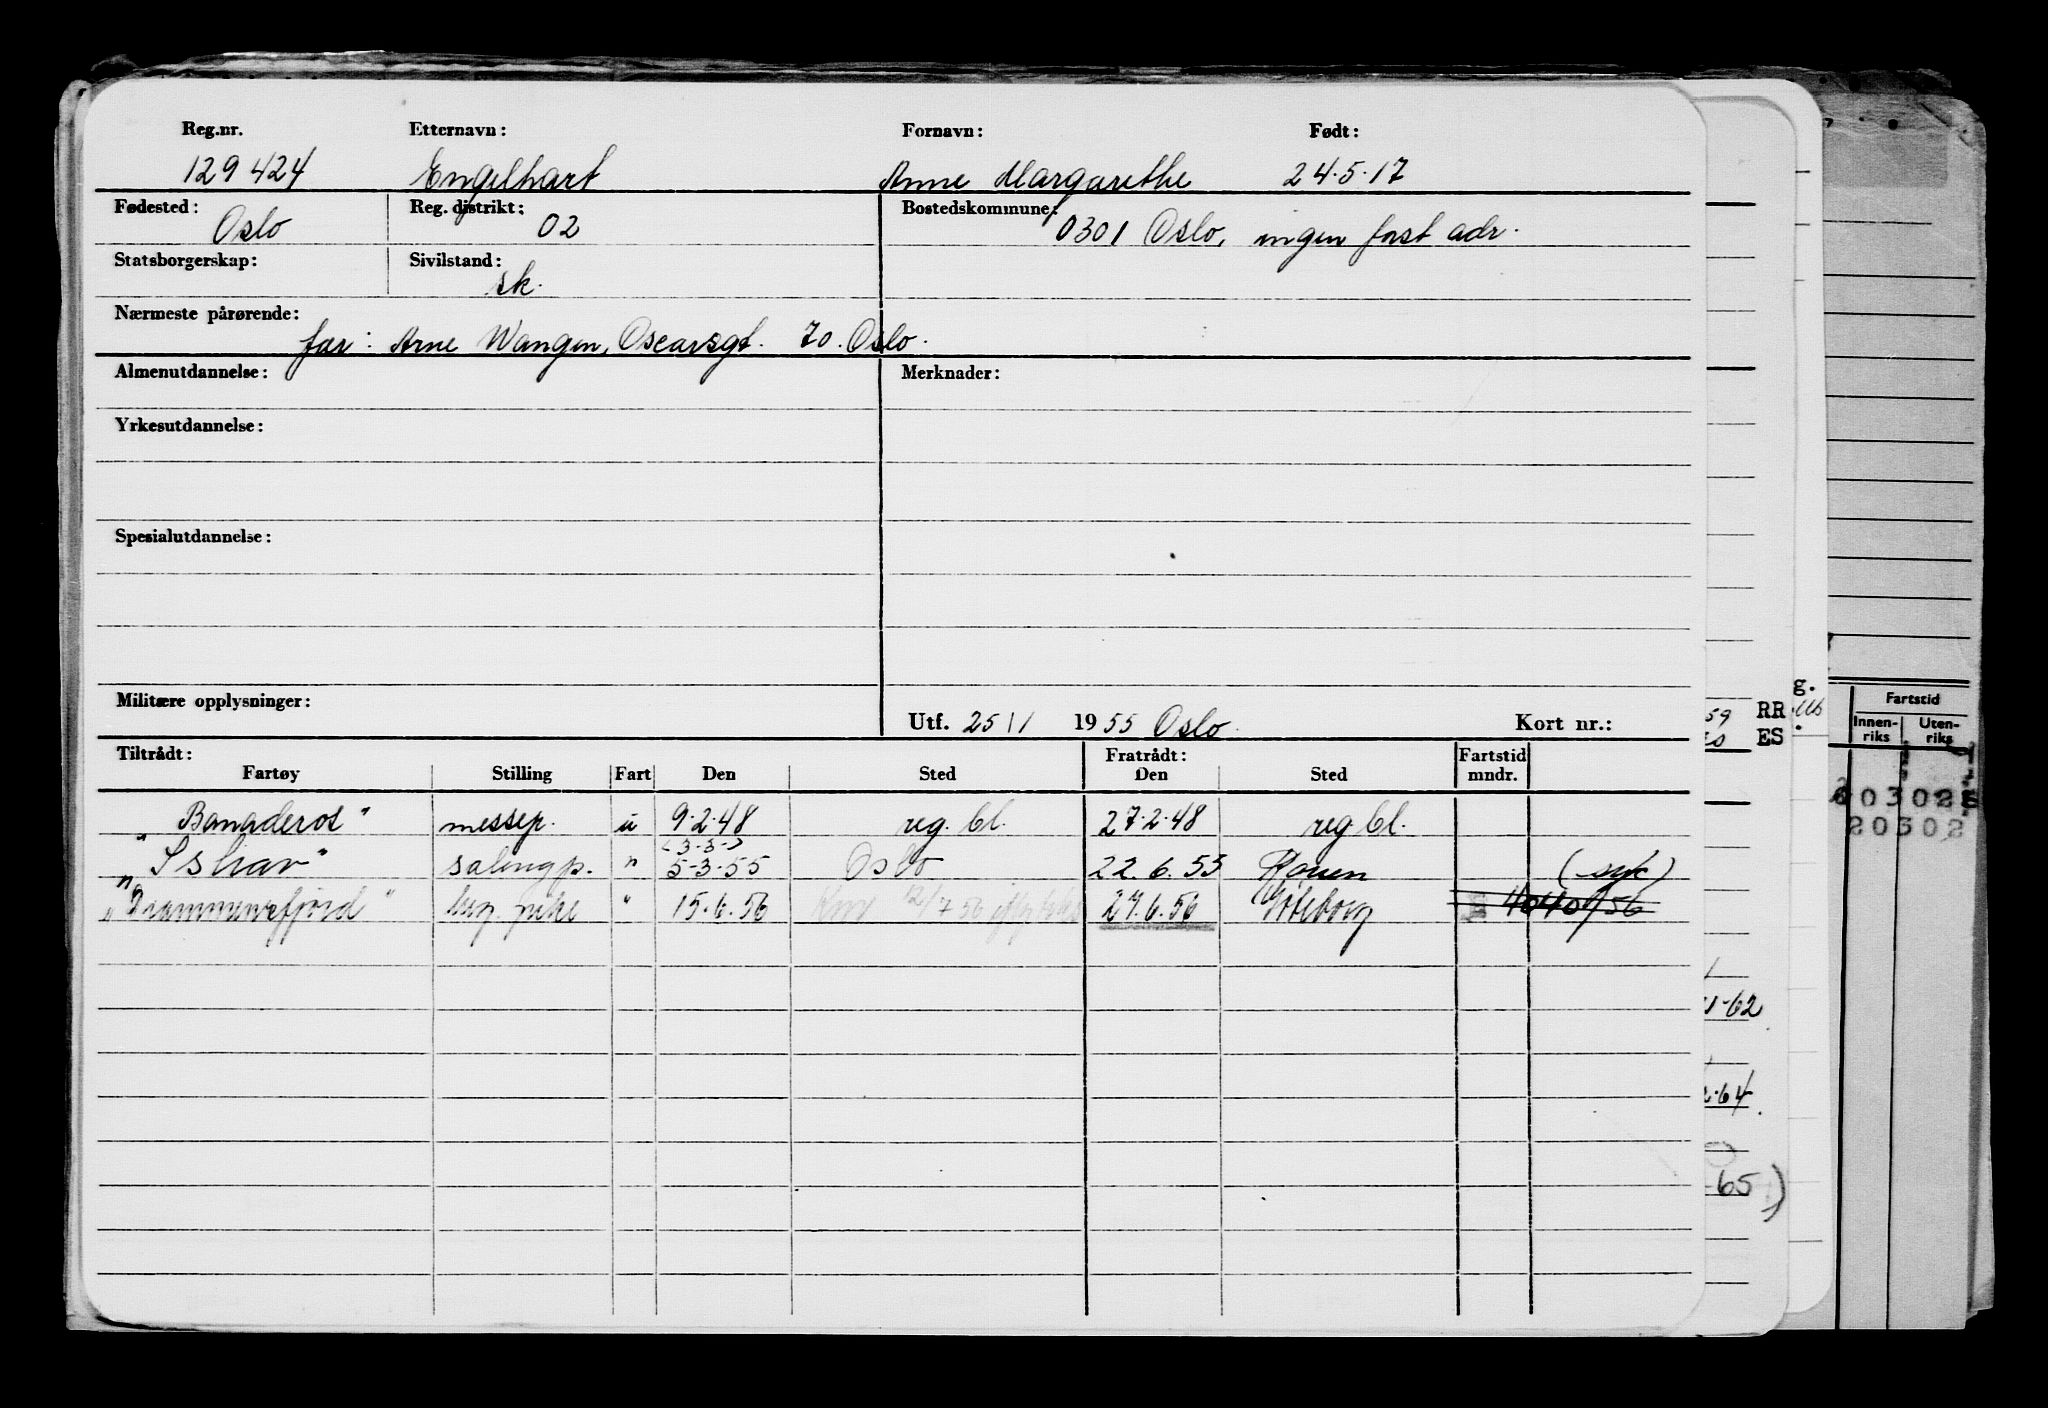 Reg.nr. Etternavn: Fornavn: Født:
129424 Engelhart Anne Margarethe 24.5.17
Fødested: Reg. distrikt: Bostedskommune:
Oslo 02 0301 Oslo, ingen fast adr.
Statsborgerskap: Sivilstand:
sk.
Nærmeste pårørende:
far: Arne Wangen, Oscarsgt. 70. Oslo.
Almenutdannelse: Merknader:
Yrkesutdannelse:
Spesialutdannelse:
Militære opplysninger:
Utf. 25/1 1955 Oslo. Kort nr.:
Tiltrådt: Fratrådt: Fartstid
Fartøy Stilling Fart Den Sted Den Sted mndr.
"Banaderos" messep. u 9.2.48 reg. bl. 27.2.48 reg. bl.
(3-3-)
"Ishav" salongp. " 5-3-55 Oslo 22.6.55 Rouen (syk)
"Drammensfjord" " 15.6.56 12/7 56 27.6.56 Gøteborg 4040/56
g.
59 RR
ES
Fartstid
Innen-riks Uten-riks
20302
-62
2.64.
65)